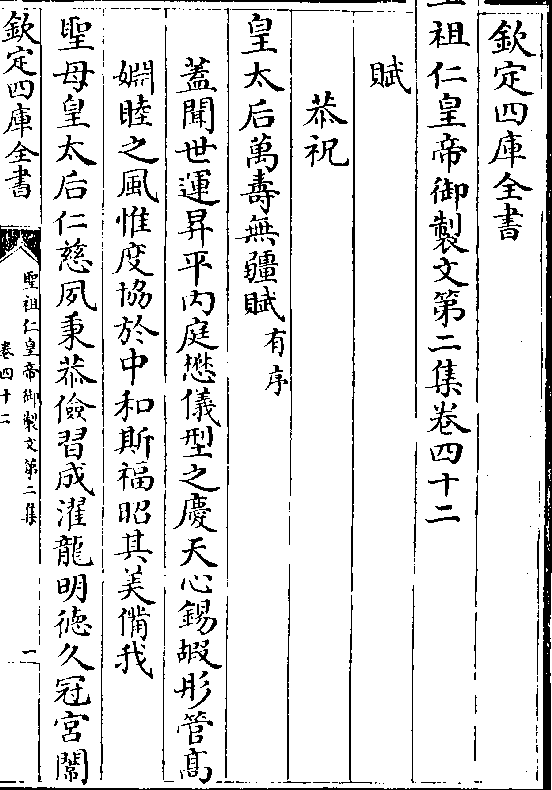 欽定四庫全書
聖祖仁皇帝御製文第二集卷四十二
賦
恭祝
皇太后萬壽無疆賦有序
蓋聞世運昇平内庭懋儀型之慶天心錫嘏彤管高
嫺睦之風惟度協於中和斯福昭其美備我
聖母皇太后仁慈夙秉恭儉習成濯龍明徳久冠宮闈
欽定四庫全書
聖祖仁皇帝御製文第二集
卷四十二
一